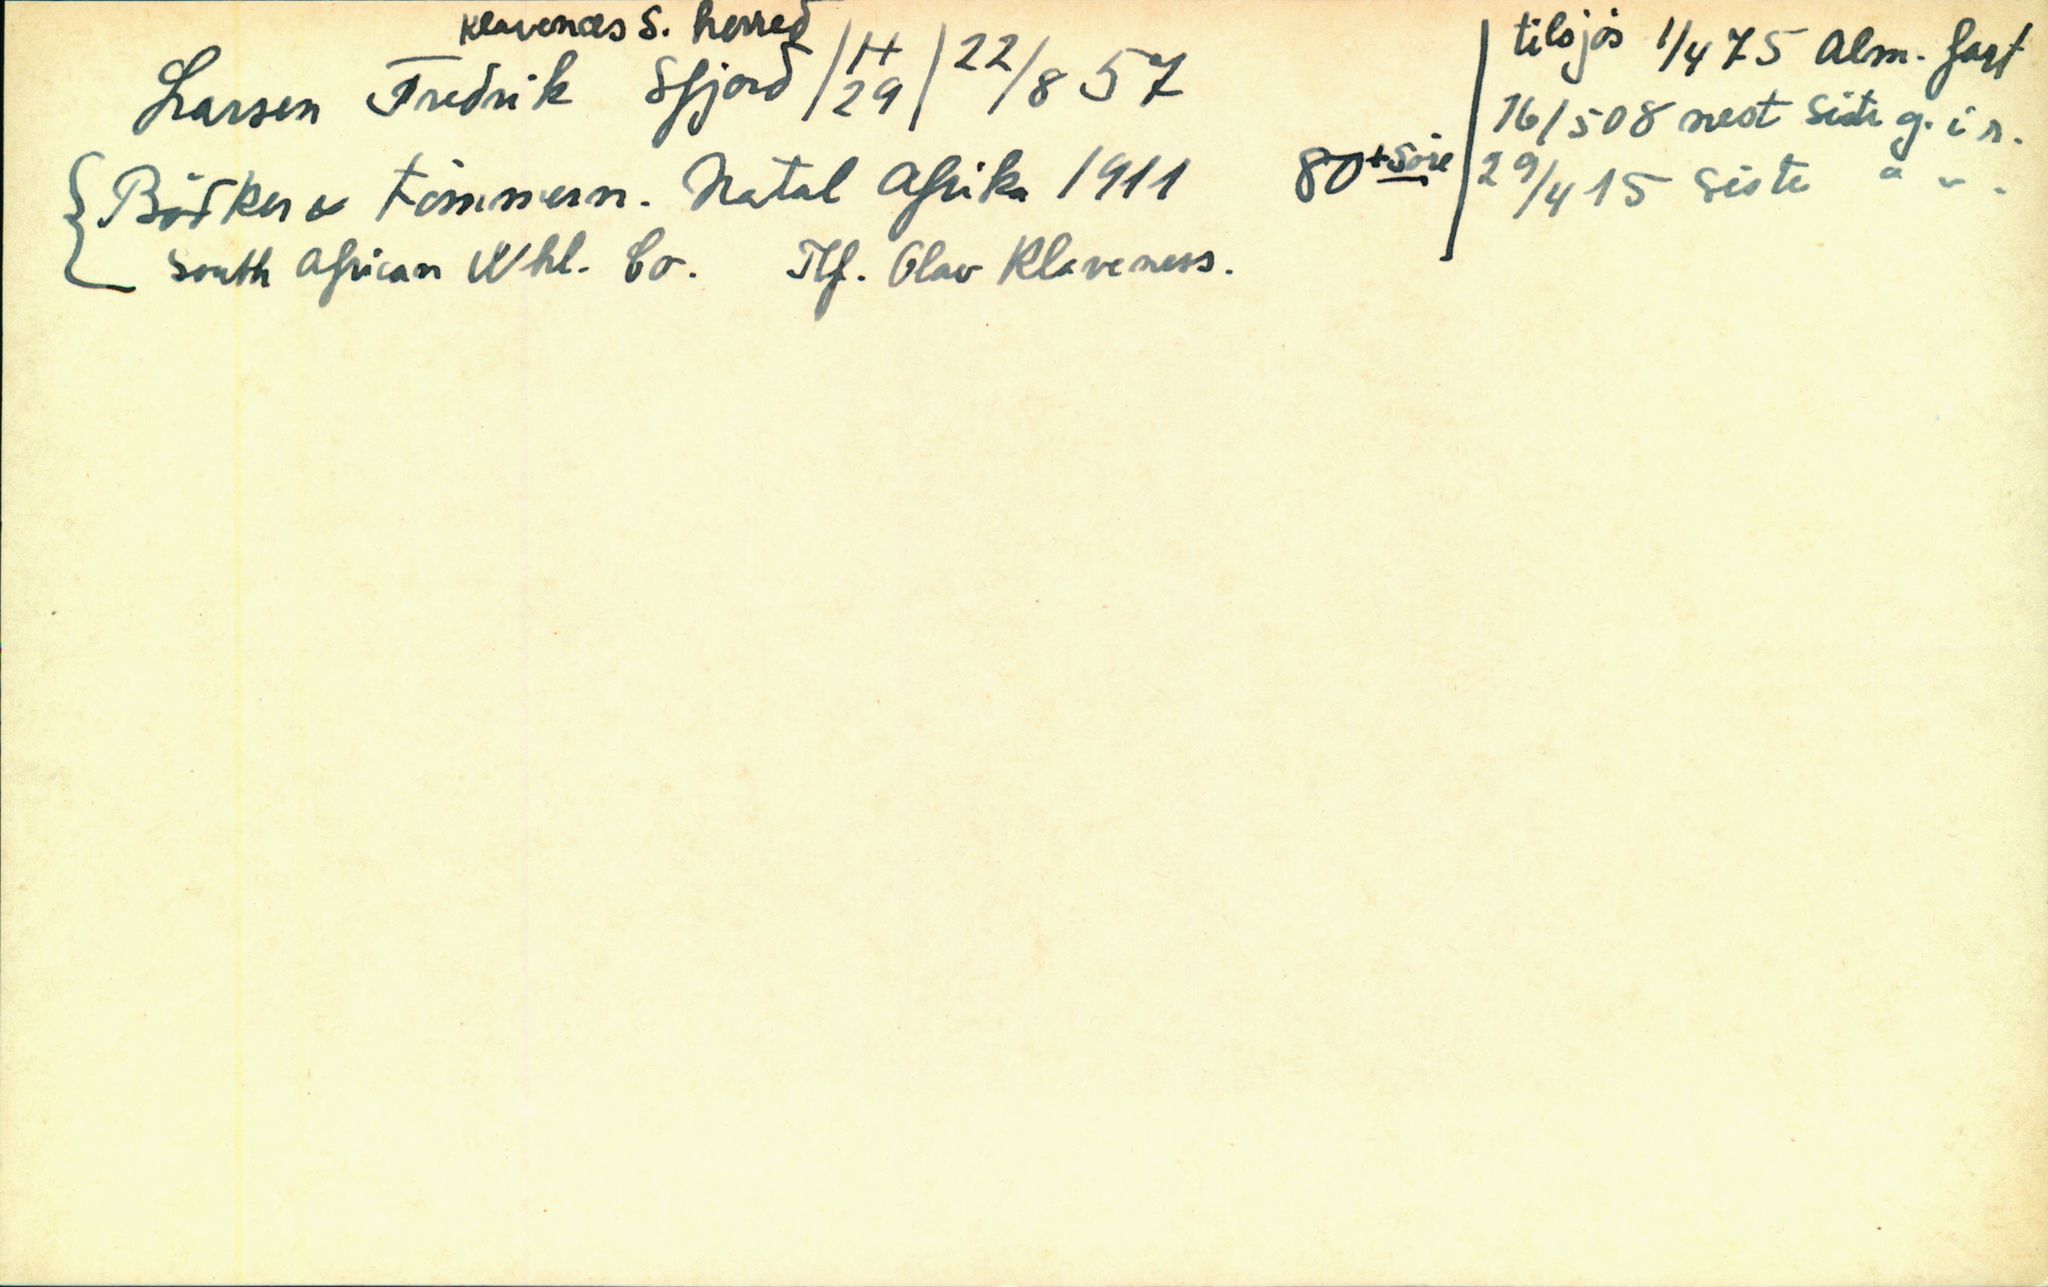 Klavenæs S. herred
Larsen Fredrik Sfjord / H 29 / 22/8 57
Bödker & tömmerm. Natal Afrika 1911 80 +
South African Whl. Co. Tlf. Olav Klaveness.
tilsjös 1/4 75 Alm. fart
16/5 08 nest siste g. i r.
29/4 15 siste " " "